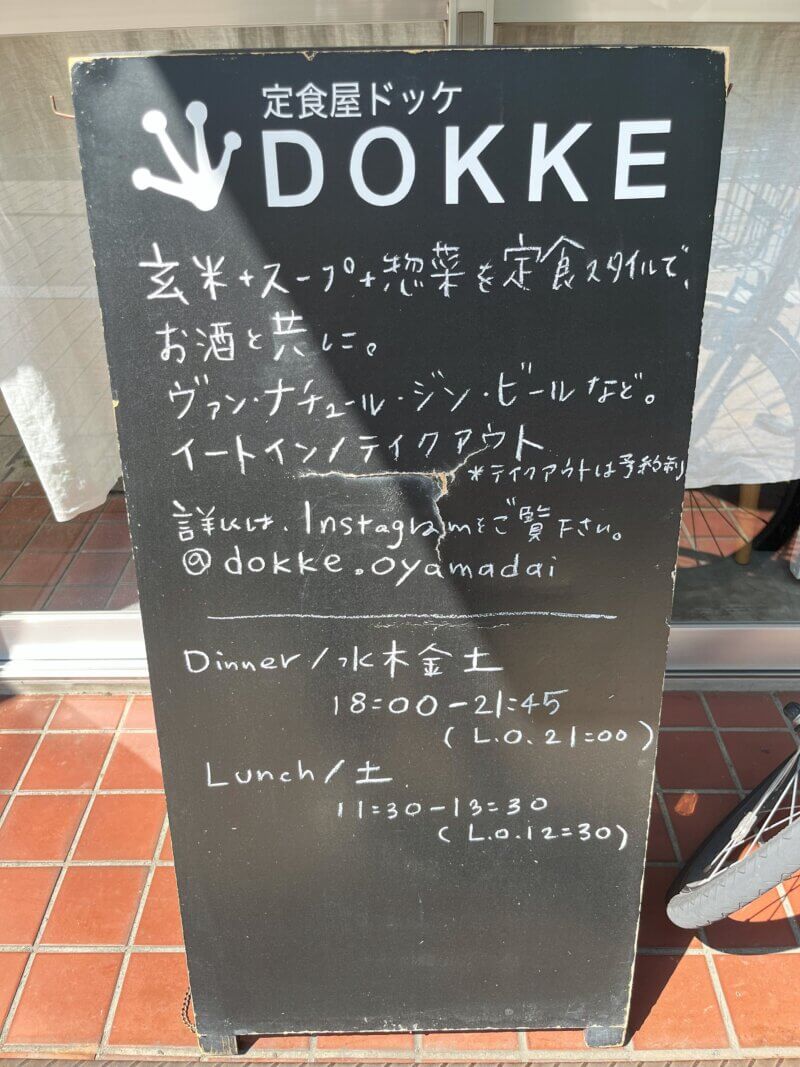 定食屋ドッケ
DOKKE
玄米+スープ+惣菜を定食スタイルで、
お酒と共に。
ヴァン・ナチュール・ジン・ビールなど。
イートイン/テイクアウト
*テイクアウトは予約制
詳しくは、Instagramをご覧下さい。
@dokke.oyamadai
Dinner/水木金土
18:00-21:45
(L.O.21:00)
Lunch/土
11:30-13:30
(L.O.12:30)